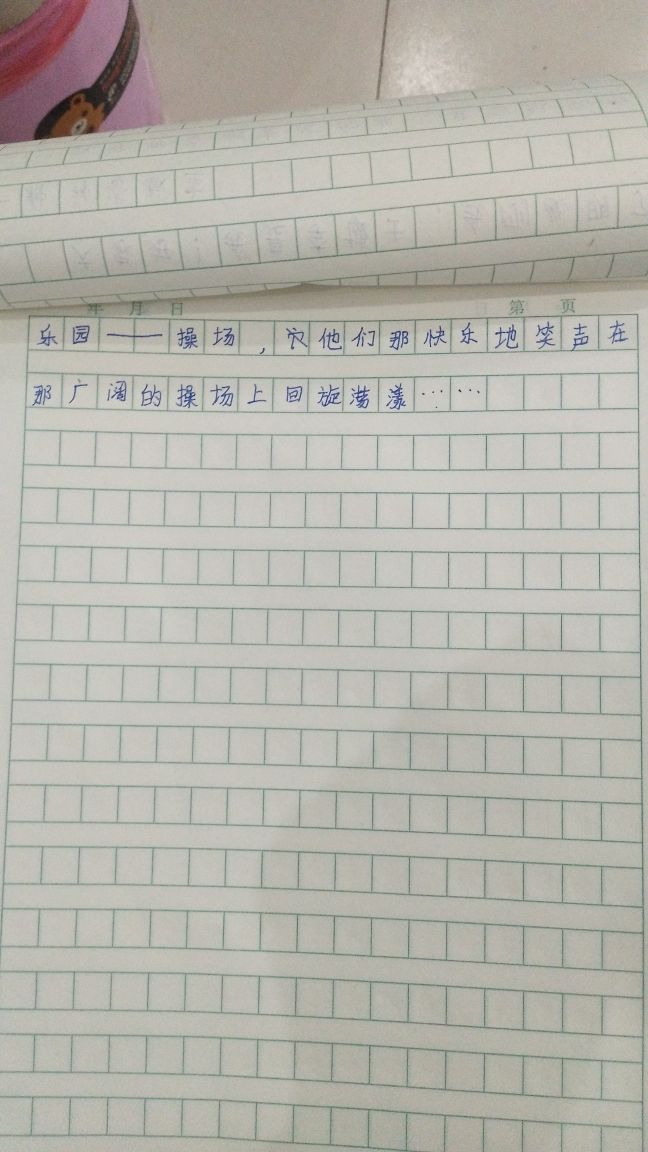 年 月 日 第 页
乐园——操场,穴他们那快乐地笑声在
那广阔的操场上回旋荡漾……